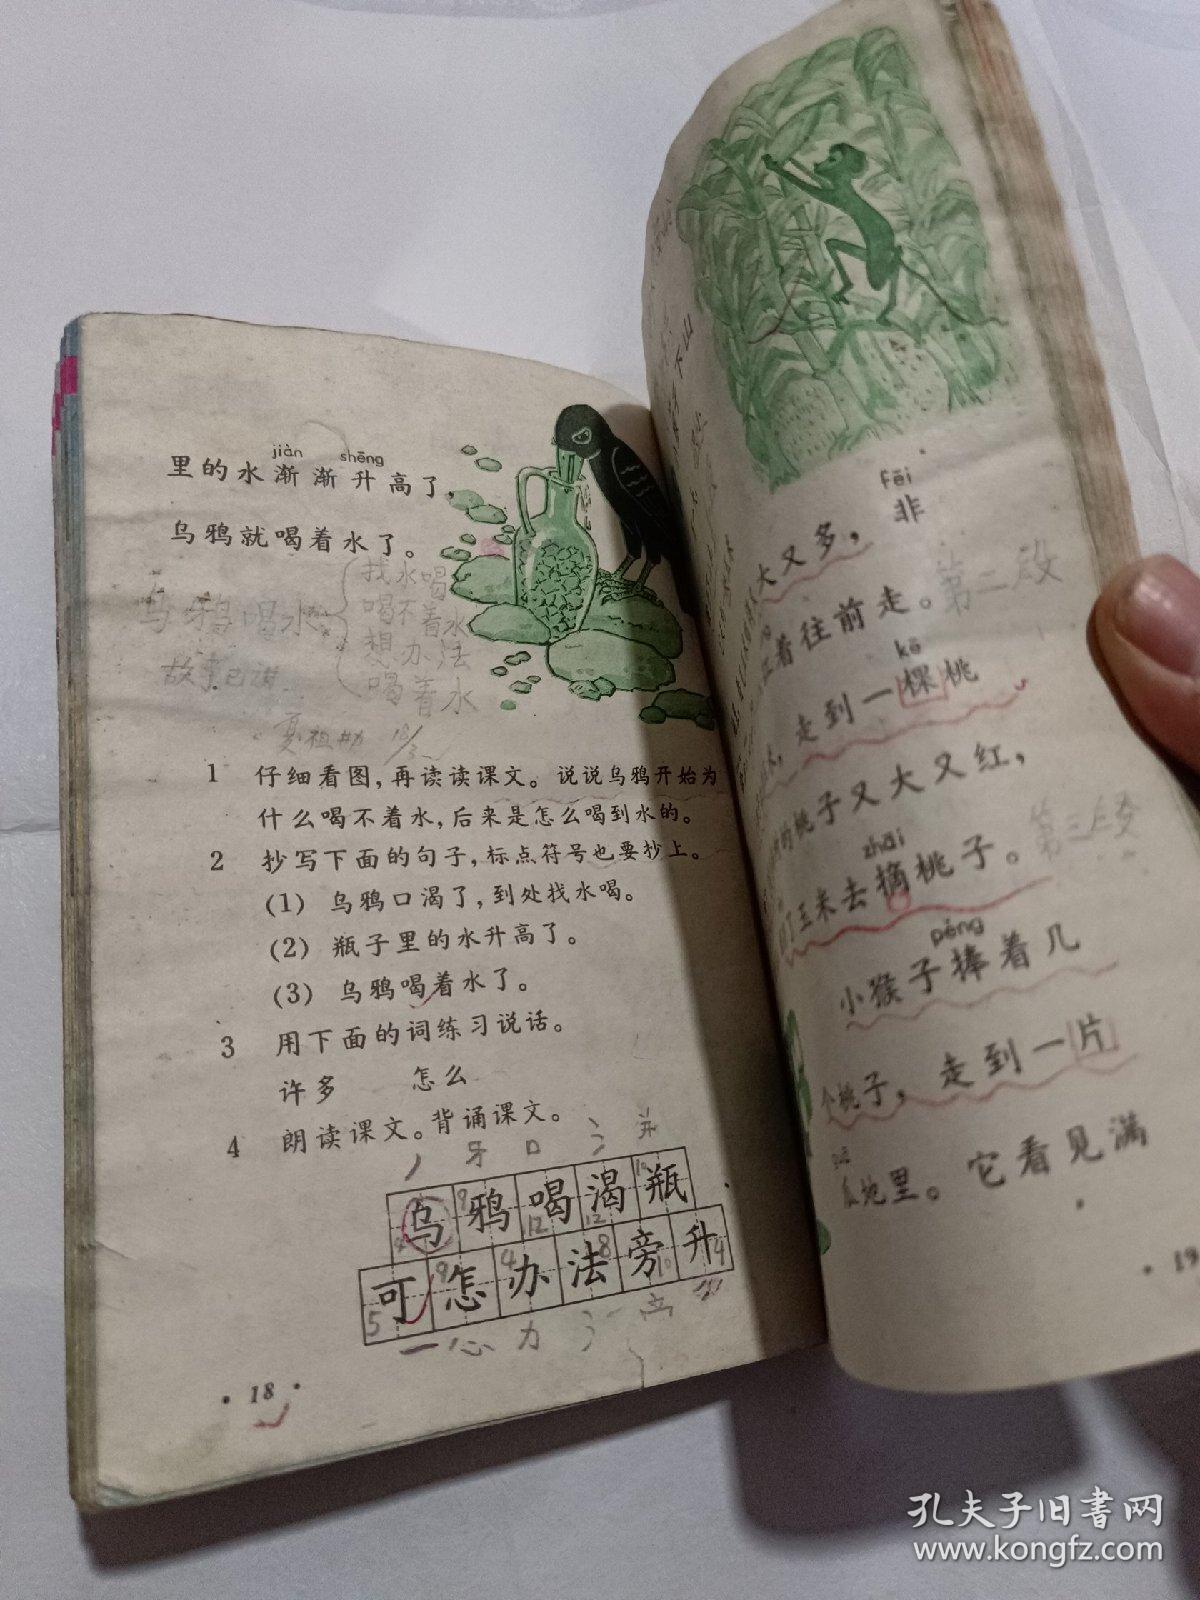 jiàn shēng
里的水渐渐升高了
乌鸦就喝着水了。
乌鸦喝水
找水喝
喝不着水
想办法
喝着水
1 仔细看图，再读读课文。说说乌鸦开始为
什么喝不着水，后来是怎么喝到水的。
2 抄写下面的句子，标点符号也要抄上。
(1) 乌鸦口渴了，到处找水喝。
(2) 瓶子里的水升高了。
(3) 乌鸦喝着水了。
3 用下面的词练习说话。
许多 怎么
4 朗读课文。背诵课文。
乌鸦喝渴瓶
可怎办法旁升
·18·
fēi
大又多，非
着往前走。
第二段
kē
走到一棵桃
桃子又大又红，
zhāi
了玉米去摘桃子。
第三段
pěng
小猴子捧着几
个桃子，走到一片
瓜地里。它看见满
·19
孔夫子旧书网
www.kongfz.com